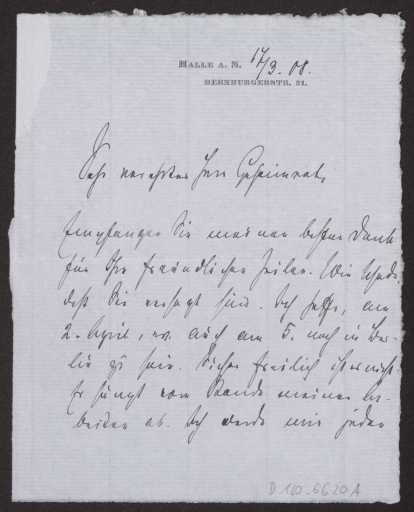 HALLE A. S. 17/3. 08.
BERNBURGERSTR. 31.
Sehr verehrter Herr Geheimrat,
Empfangen Sie meinen besten Dank
für Ihre freundlichen Zeilen. Wie schade,
daß Sie versagt sind. Ich hoffe, am
2. April, ev. auch am 5. noch in Ber-
lin zu sein. Sicher freilich ist es nicht.
Es hängt vom Stande meiner Ar-
beiten ab. Ich werde mir jeden
D.100.6620A